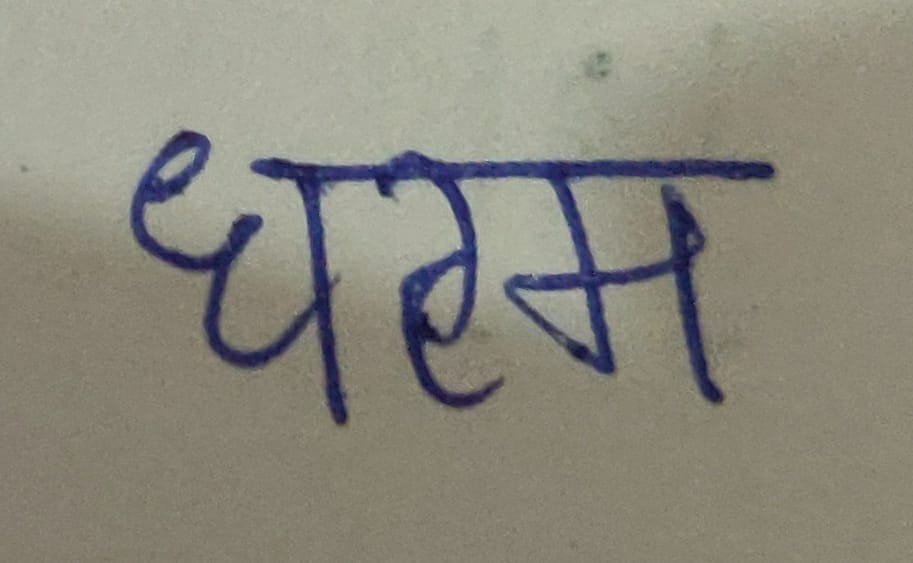 धरम